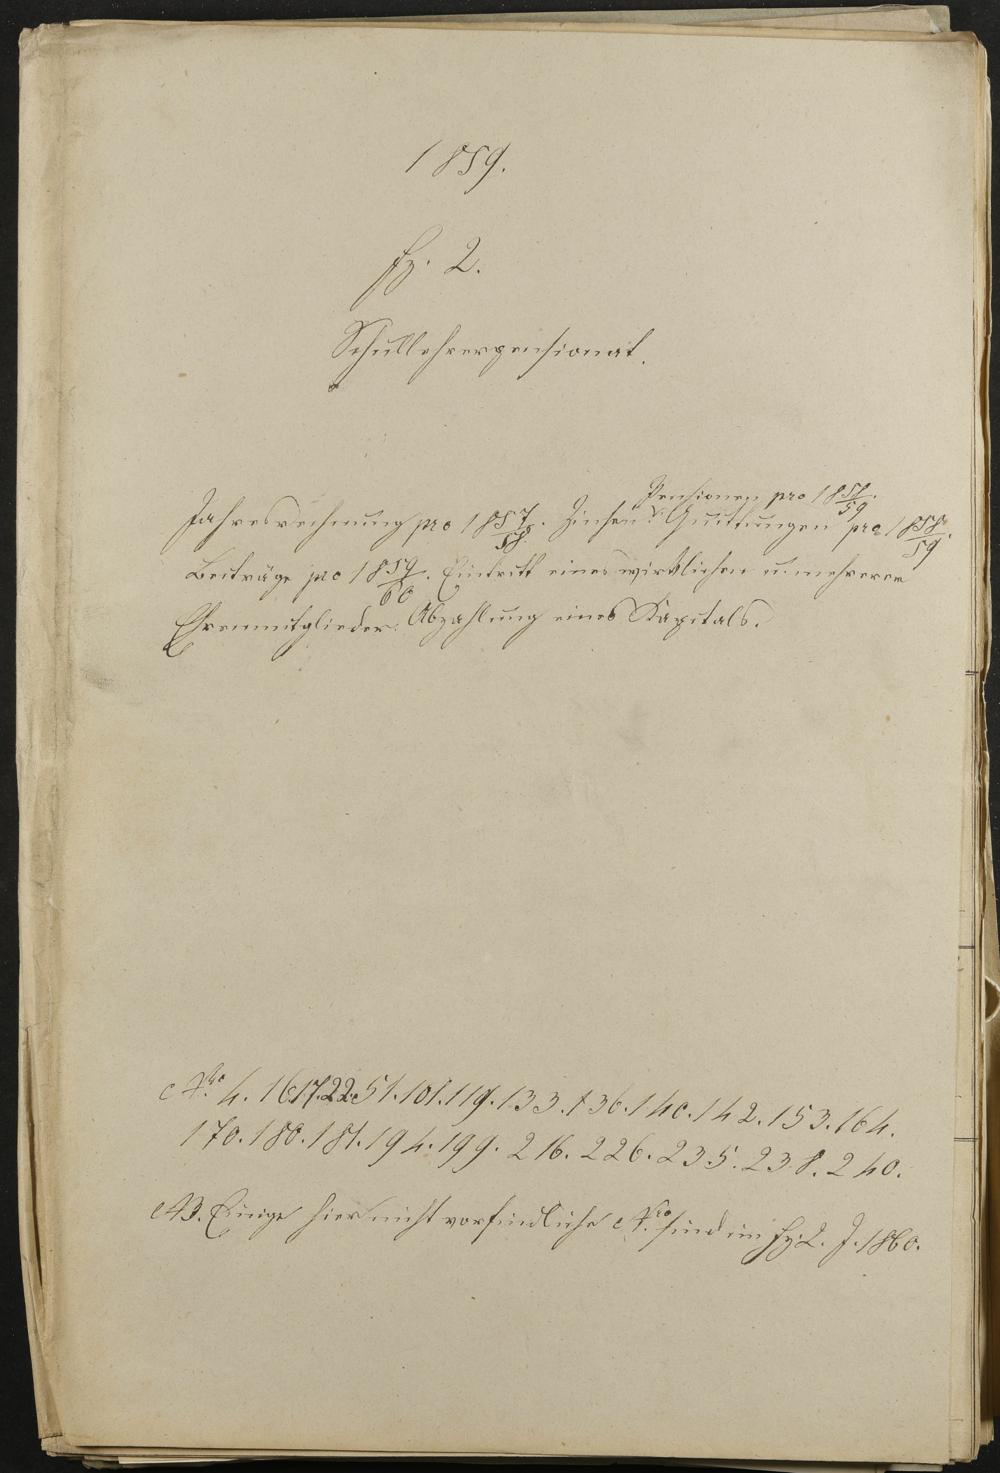 1859.
fz. 2.
Schullehrerpensionat.
Pensionen pro 1858/59.
Jahresrechnung pro 1857/58. Zinsen. Quittungen pro 1858/59.
Beiträge pro 1859/60. Eintritt eines wirklichen u. mehrerer
Ehrenmitglieder. Abzahlung eines Kapitals.
Nro 4. 16. 17. 22. 51. 101. 119. 133. 136. 140. 142. 153. 164.
170. 180. 181. 194. 199. 216. 226. 235. 238. 240.
NB. Einige hier nicht vorfindliche Nro. sind im fz. 2. J. 1860.